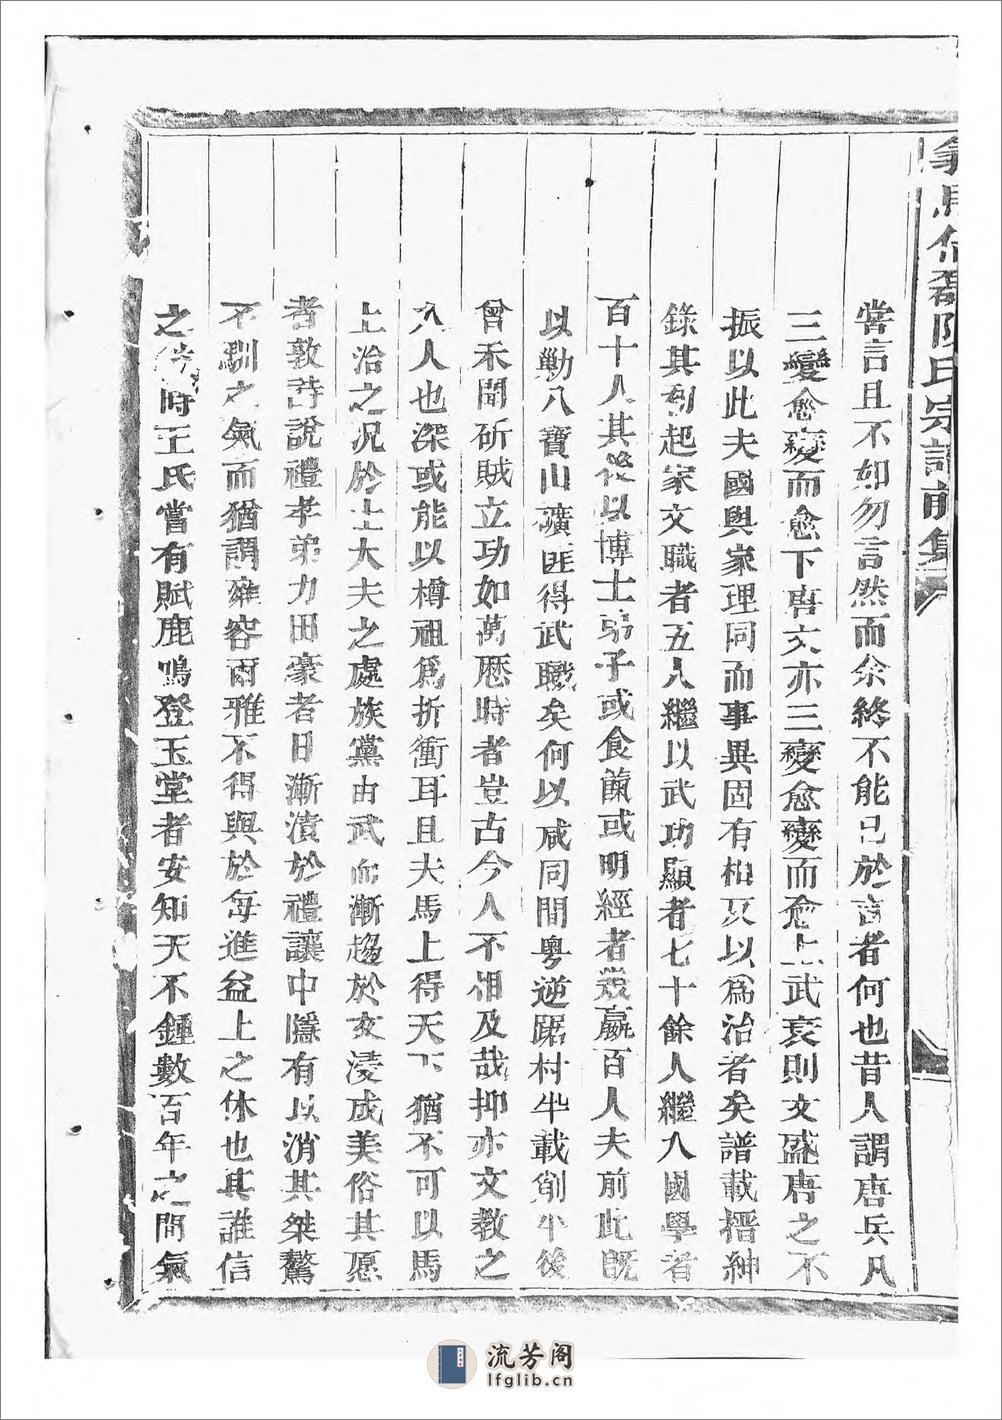 陳氏宗譜前集
嘗言且不如勿言然而余終不能已於言者何也昔人謂唐兵凡
三變愈變而愈下唐文亦三變愈變而愈上武衰則文盛唐之不
振以此夫國與家理同而事異固有相反以爲治者矣譜載搢紳
錄其列起家文職者五人繼以武功顯者七十餘人繼入國學者
百十人其後以博士弟子或食餼或明經者幾贏百人夫前此既
以勦八寶山礦匪得武職矣何以咸同間粤逆踞村半載削平後
曾未聞斫賊立功如萬厯時者豈古今人不相及哉抑亦文教之
入人也深或能以樽祖爲折衝耳且夫馬上得天下猶不可以馬
上治之况於士大夫之處族黨由武而漸趨於文浸成美俗其愿
者敦詩說禮孝弟力田豪者日漸漬於禮讓中隱有以消其桀驁
不馴之氣而猶謂雍容爾雅不得與於每進益上之休也其誰信
之 時王氏嘗有賦鹿鳴登玉堂者安知天不鍾數百年之間氣
流芳阁
lfglib.cn